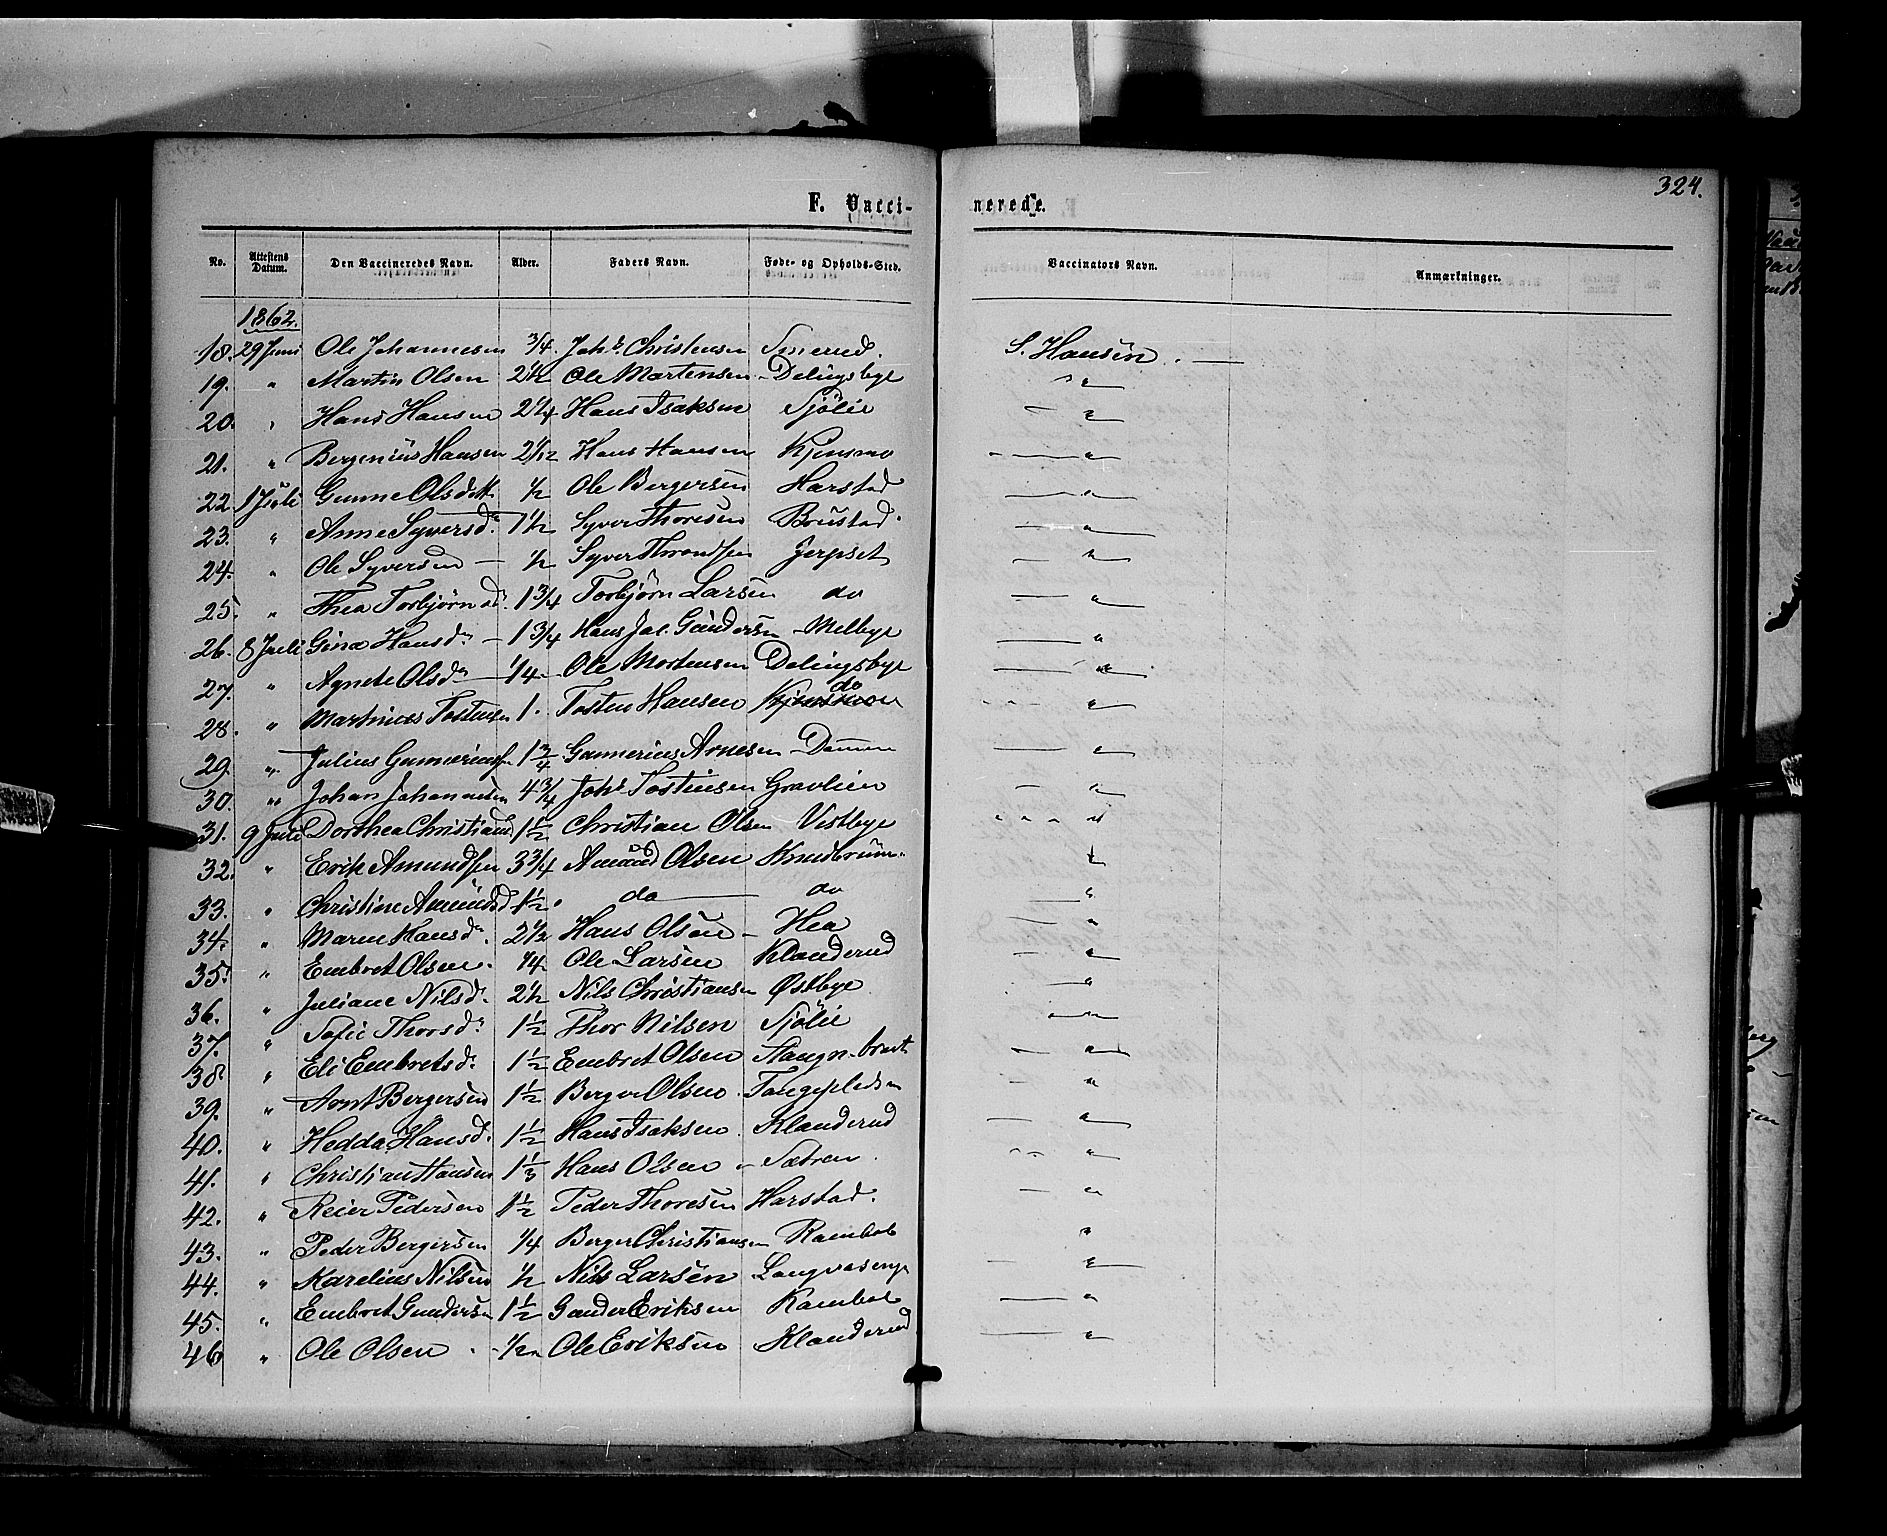 324.
F. Vacci- nerede.
No. Attestens Datum. Den Vaccineredes Navn. Alder. Faders Navn. Føde- og Opholds-Sted. Vaccinators Navn. Anmærkninger.
1862.
18. 29 Juni Ole Johannesen 3/4. Johs. Christensen Smerud. S. Hansen. —
19. " Martin Olsen 2 1/2 Ole Martensen Delingsbye "
20. " Hans Hansen 2 1/4 Hans Isaksen Sjölie "
21. " Bergenius Hansen 2 1/12 Hans Hansen Kjensmo "
22. 1 Juli Gunne Olsdatt 1/2 Ole Bergersen Harstad "
23. " Anne Syversd. 1 1/2 Syver Thoresen Brustad. "
24. " Ole Syversen — 1/2 Syver Throndsen Jerpset "
25. " Thea Torbjörnsd. 1 3/4 Torbjörn Larsen do "
26. 8 Juli Gina Hansd. — 1 3/4 Hans Jac. Gundersen Melbye "
27. " Agnete Olsd. — 1/4 Ole Mortensen Delingsbye "
28. " Martinus Tostensen 1. Tosten Hansen do "
29. " Julius Gunneriusen 1 3/4 Gunnerius Arnesen Dammen "
30. " Johan Johannesen 4 3/4 Johs. Tostensen Gravlien "
31. 9 Juli Dorthea Christiansd 1 1/2 Christian Olsen Vestbye "
32. " Erik Amundsen 3 3/4 Amund Olsen "
33. " Christine Amundsd 1 1/2 do — do "
34. " Maren Hansd. 2 1/2 Hans Olsen — Hea "
35. " Embret Olsen. 1/4 Ole Larsen Klanderud "
36. " Juliane Nilsd. 2 1/2 Nils Christiansen Østbye "
37. " Sofie Thorsd. 1 1/2 Thor Nilsen Sjölie "
38 " Eli Embretsd. 1 1/2 Embret Olsen "
39. " Arnt Bergersen 1 1/2 Berger Olsen. Tangepladsen "
40. " Hedda Hansd. 1 1/2 Hans Isaksen. Klanderud "
41. " Christian Hansen 1 1/3 Hans Olsen — Sætren. "
42. " Reier Pedersen 1 1/2 Peder Thoresen Harstad. "
43. " Peder Bergersen 1/4 Berger Christiansen Rambøl "
44. " Karelius Nilsen 1/2 Nils Larsen Langvasenge "
45. " Embret Gundersen 1 1/2 Gunder Eriksen Rambøl "
46 " Ole Olsen. 1/2 Ole Eriksen Klanderud "